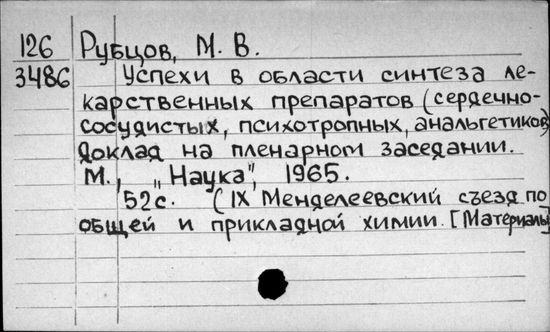 126 Рубцов, М. В.
3486 Успехи в области синтеза ле-
карственных препаратов (сердечно-
сосудистых, психотропных, анальгетиков)
доклад на пленарном заседании.
М., „Наука", 1965.
52с. (IX Менделеевский съезд по
общей и прикладной химии. [Материалы]